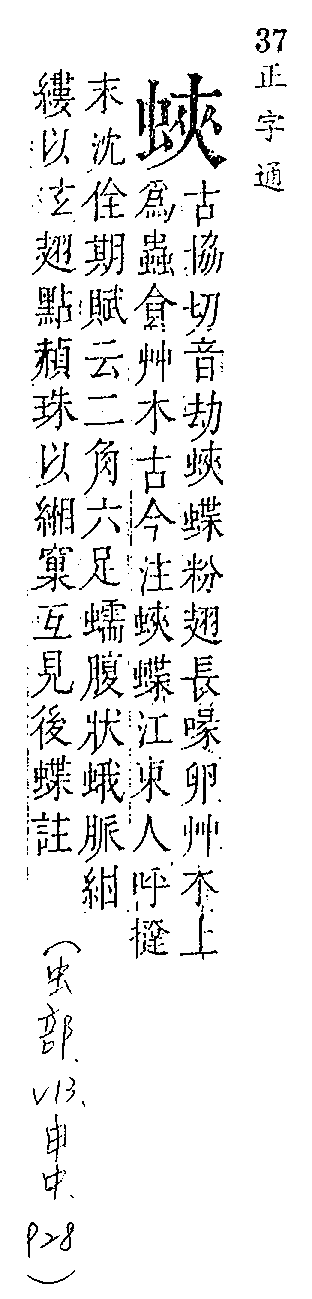 37
正字通
蛺
古協切音劫蛺蝶粉翅長喙卵艸木上
爲蟲食艸木古今注蛺蝶江東人呼撻
末沈佺期賦云二角六足蠕腹狀蛾脈紺
縷以玄翅點赬珠以緗窠互見後蝶註
(虫部、V13、申中、P28)